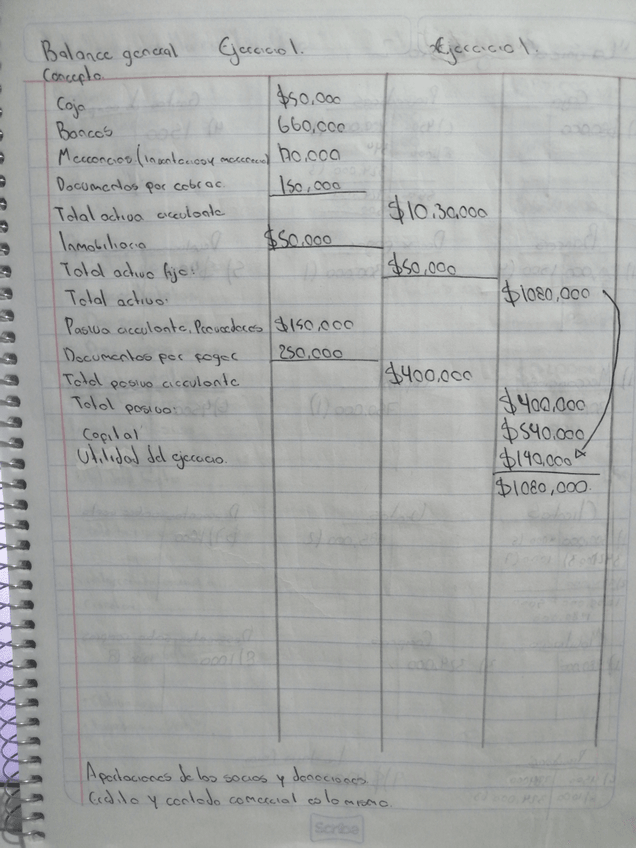 Balance general Ejercicio 1. Ejercicio 1.
Concepto
Caja $50,000
Bancos 660,000
Mercancias (Inventarios y mercancia) 170,000
Documentos por cobrar 150,000
Total activo circulante $10,30,000
Inmobiliario $50,000
Total activo fijo: $50,000
Total activo: $1080,000
Pasivo circulante, Proveedores $150,000
Documentos por pagar 250,000
Total pasivo circulante $400,000
Total pasivo: $400,000
Capital $540,000
Utilidad del ejercicio. $140,000
$1080,000.
Aportaciones de los socios y donaciones
Credito y contado comercial es lo mismo.
Scribe